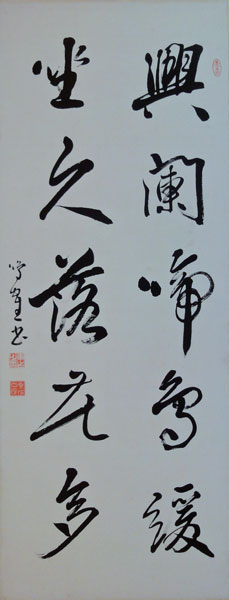 興闌啼鳥緩
坐久落花多
書